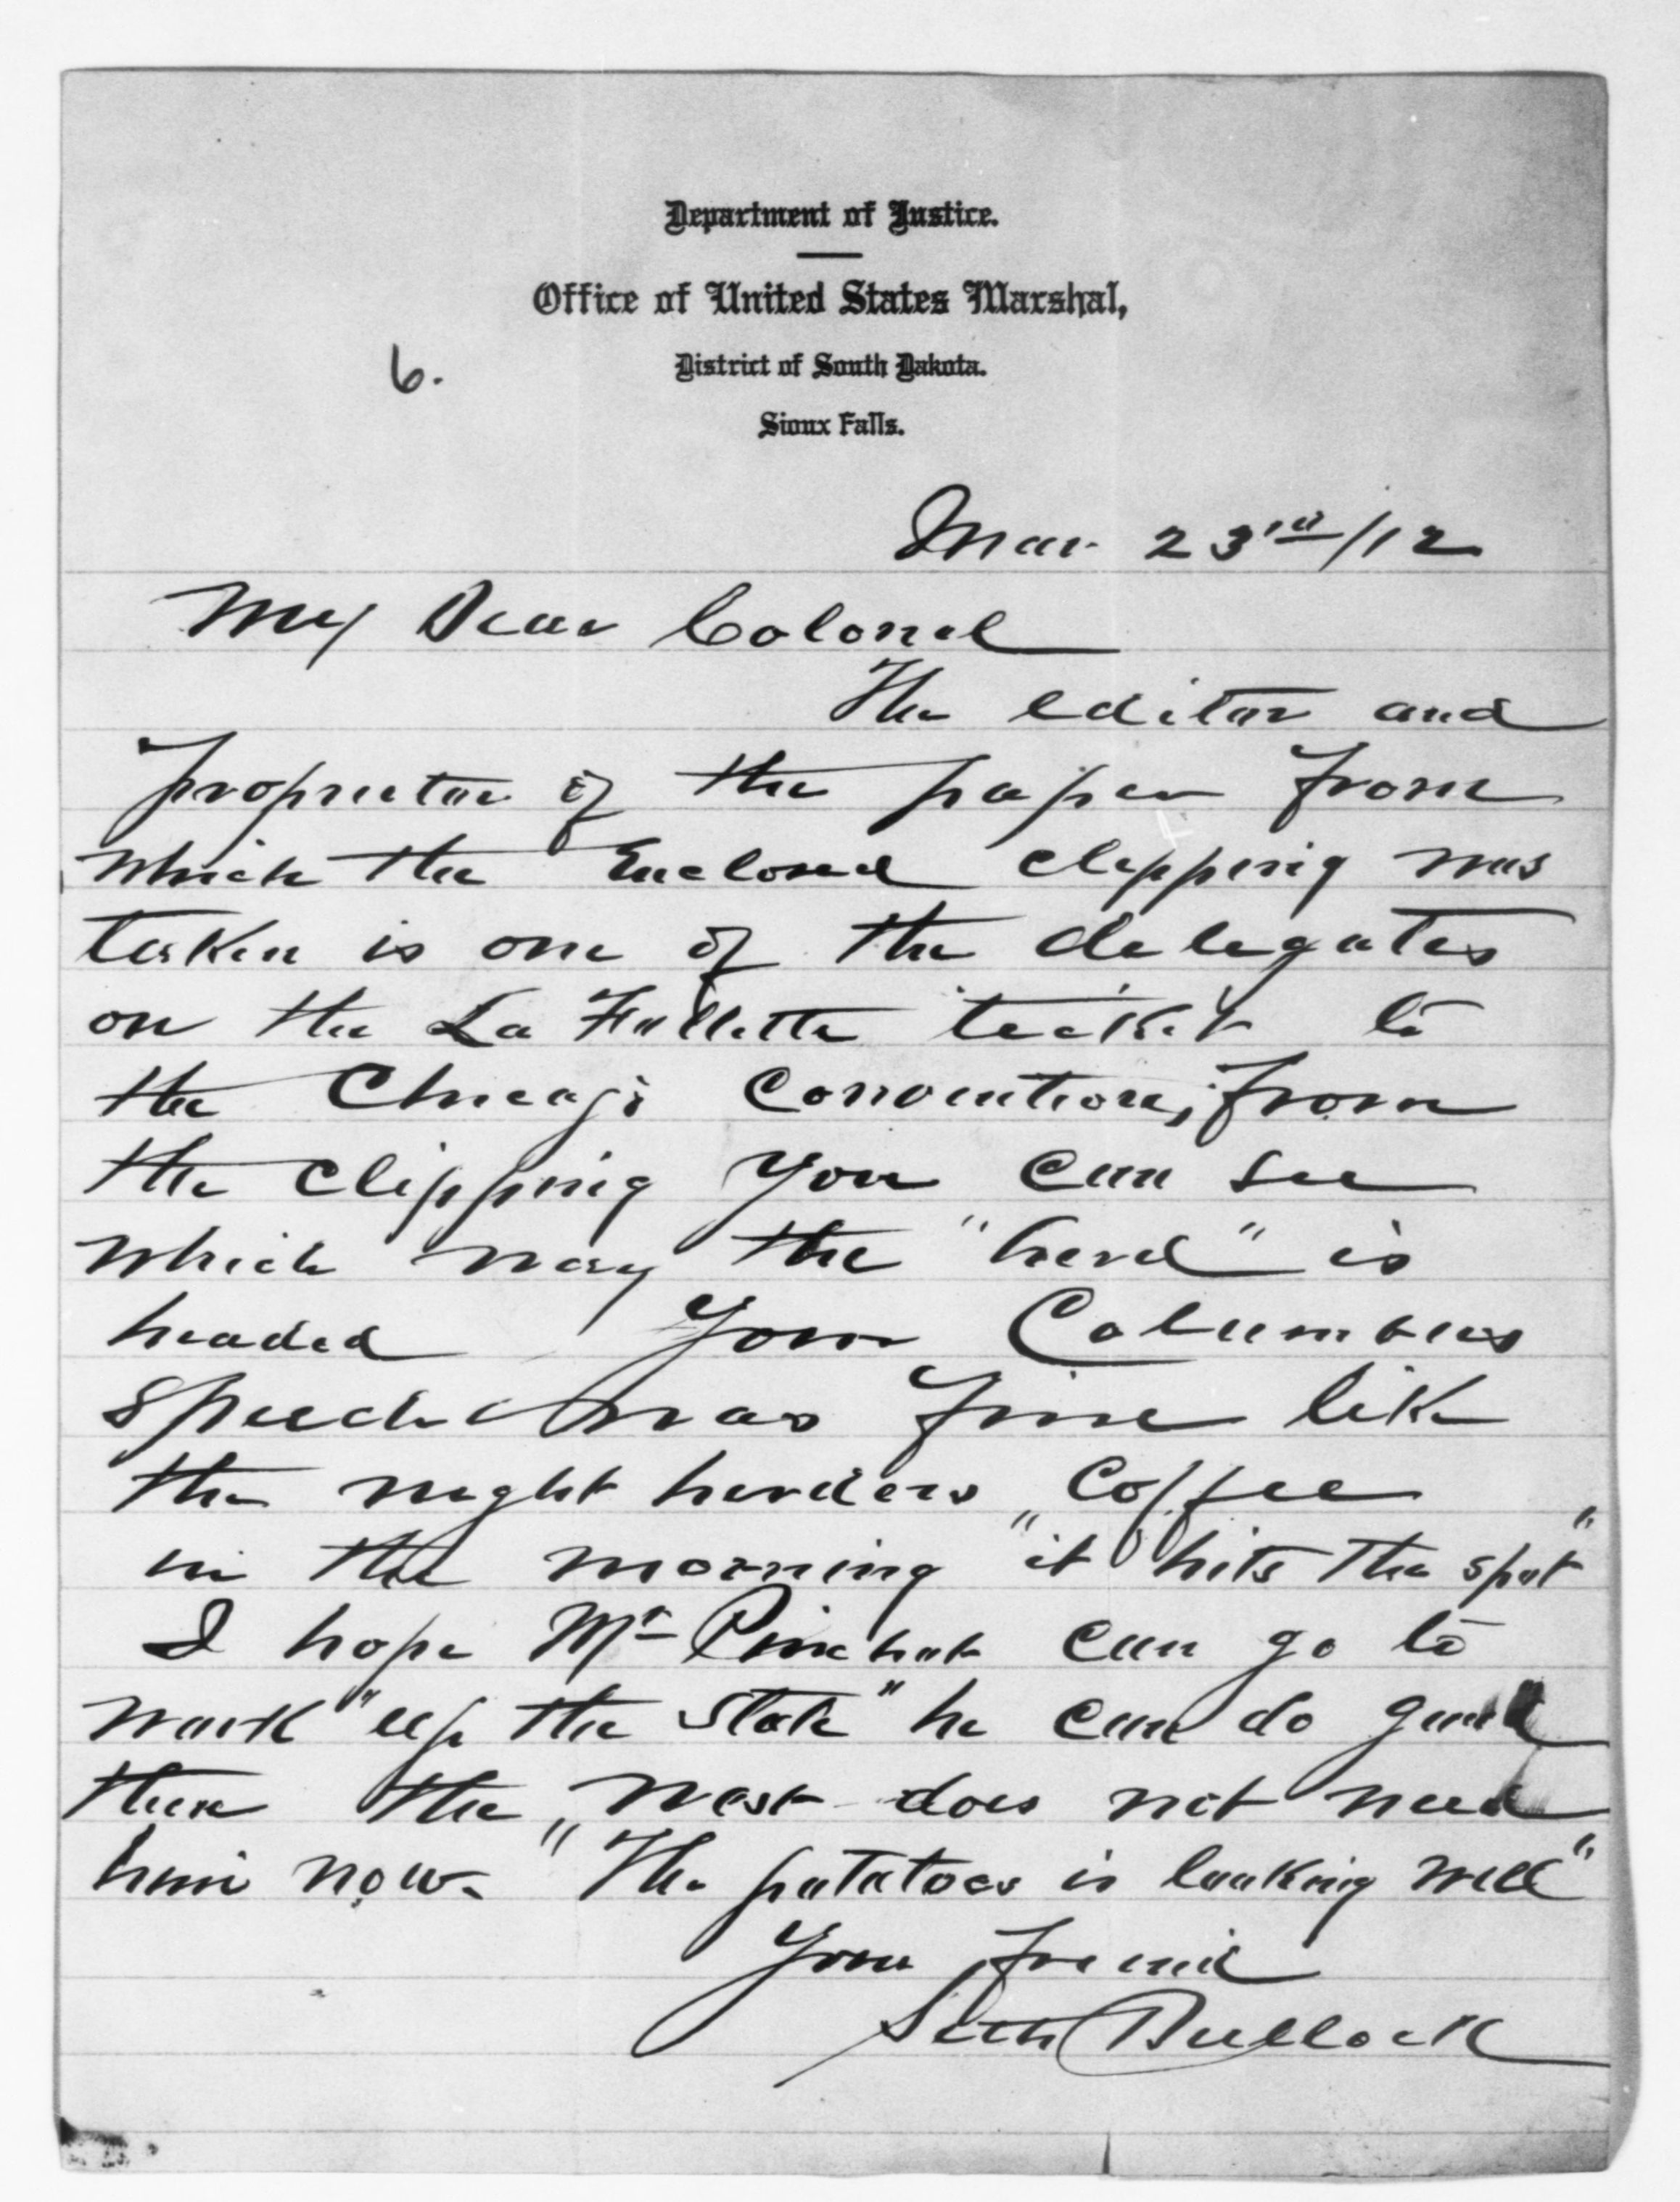 Department of Justice.
Office of United States Marshal,
District of South Dakota.
Sioux Falls.
6.
Mar 23rd/12
My Dear Colonel
The editor and
proprietor of the paper from
which the Enclosed clipping was
taken is one of the delegates
on the La Follette ticket to
the Chicago Convention, from
the clipping you can see
which way the "herd" is
headed Your Columbus
speech was fine like
the night herders Coffee
in the morning "it hits the spot"
I hope Mr Pinchot can go to
work "up the State" he can do good
there the west does not need
him now. "The potatoes is looking well"
Your friend
Seth Bullock